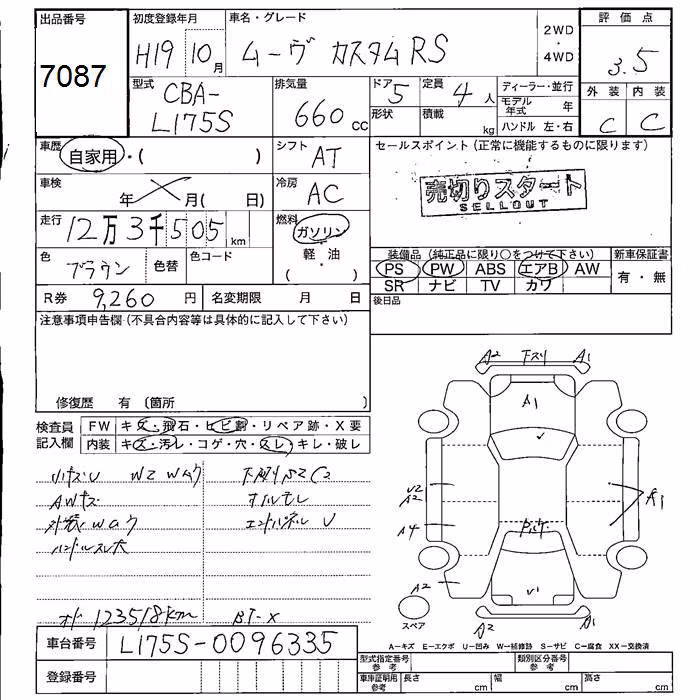 出品番号 初度登録年月 車名・グレード 2WD・4WD 評価点
7087 H19 10月 ムーヴ カスタム RS 3.5
型式 排気量 ドア 定員 ディーラー・並行 外装 内装
CBA- 660cc 5 4人 モデル年式 年 C C
L175S 形状 積載 kg ハンドル 左・右
車歴 自家用・( ) シフト AT セールスポイント(正常に機能するものに限ります)
車検 年 月( 日) 冷房 AC 売切りスタート
SELLOUT
走行 12万3千505km 燃料 ガソリン
軽・油
( )
色 ブラウン 色替 色コード
装備品(純正品に限り○をつけて下さい) 新車保証書
PS PW ABS エアB AW 有・無
SR ナビ TV カワ
R券 9,260円 名変期限 月 日 後日品
注意事項申告欄(不具合内容等は具体的に記入して下さい)
修復歴 有 〔箇所
検査員 FW キズ・飛石・ヒビ割・リペア跡・X要
記入欄 内装 キズ・汚レ・コゲ・穴・スレ・キレ・破レ
小キズU W2
AWキズ
ハンドルスレ大
エンドパネルU
123518km
A2 下スリ A1
A1
U2
A2
A1
A4
A2
U1
スペア
A2 A1
A−キズ E−エクボ U−凹み W−補修跡 S−サビ C−腐食 XX−交換済
車台番号 L175S-0096335
登録番号
型式指定番号 参考 類別区分番号 参考
車庫証明用 参考 長さ cm 幅 cm 高さ cm